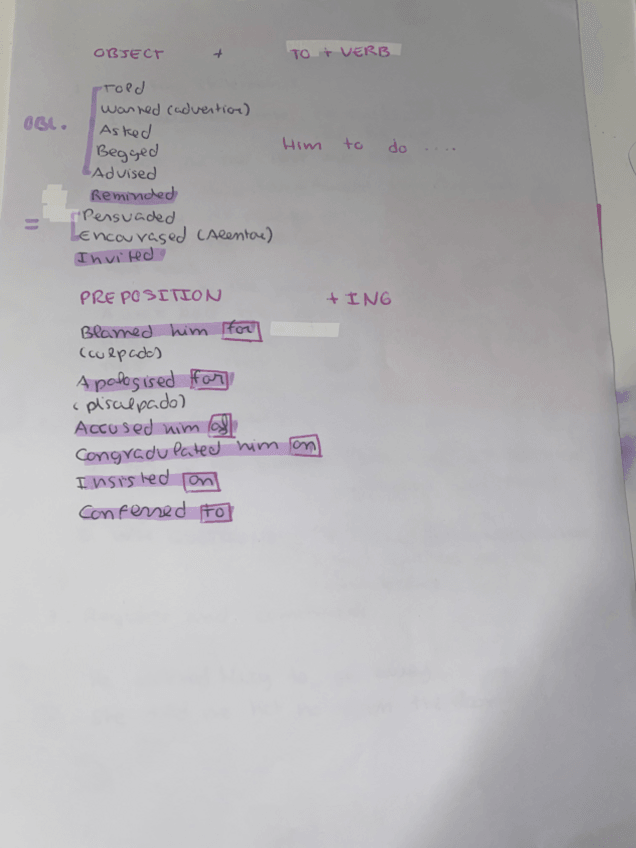 OBJECT + TO + VERB
Told
Warned (advertior)
OBL. Asked
Begged Him to do ....
Advised
Reminded
= Persuaded
Encouraged (Alentar)
Invited
PREPOSITION + ING
Blamed him for
(culpado)
Apologised for
(Disculpado)
Accused him of
Congradulated him on
Insisted on
Confessed to